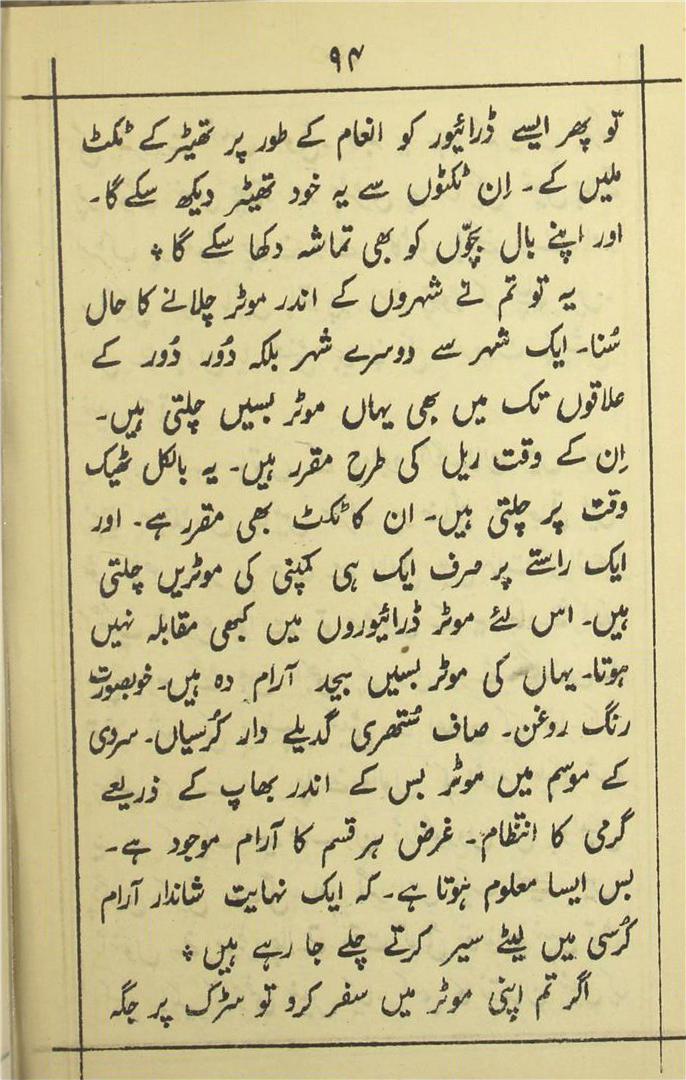 ۹۴
تو پھر ایسے ڈرائیور کو انعام کے طور پر تھیٹر کے ٹکٹ
ملیں گے۔ اِن ٹکٹوں سے یہ خود تھیٹر دیکھ سکے گا۔
اور اپنے بال بچّوں کو بھی تماشہ دکھا سکے گا *
یہ تو تم نے شہروں کے اندر موٹر چلانے کا حال
سُنا۔ ایک شہر سے دوسرے شہر بلکہ دُور دُور کے
علاقوں تک میں بھی یہاں موٹر بسیں چلتی ہیں۔
اِن کے وقت ریل کی طرح مقرر ہیں۔ یہ بالکل ٹھیک
وقت پر چلتی ہیں۔ ان کا ٹکٹ بھی مقرر ہے۔ اور
ایک راستے پر صرف ایک ہی کمپنی کی موٹریں چلتی
ہیں۔ اس لئے موٹر ڈرائیوروں میں کبھی مقابلہ نہیں
ہوتا۔ یہاں کی موٹر بسیں بیحد آرام دہ ہیں۔ خوبصورت
رنگ روغن۔ صاف سُتھری گدیلے دار کُرسیاں۔ سردی
کے موسم میں موٹر بس کے اندر بھاپ کے ذریعے
گرمی کا انتظام۔ غرض ہر قسم کا آرام موجود ہے۔
بس ایسا معلوم ہوتا ہے۔ کہ ایک نہایت شاندار آرام
کُرسی میں لیٹے سیر کرتے چلے جا رہے ہیں *
اگر تم اپنی موٹر میں سفر کرو تو سڑک پر جگہ